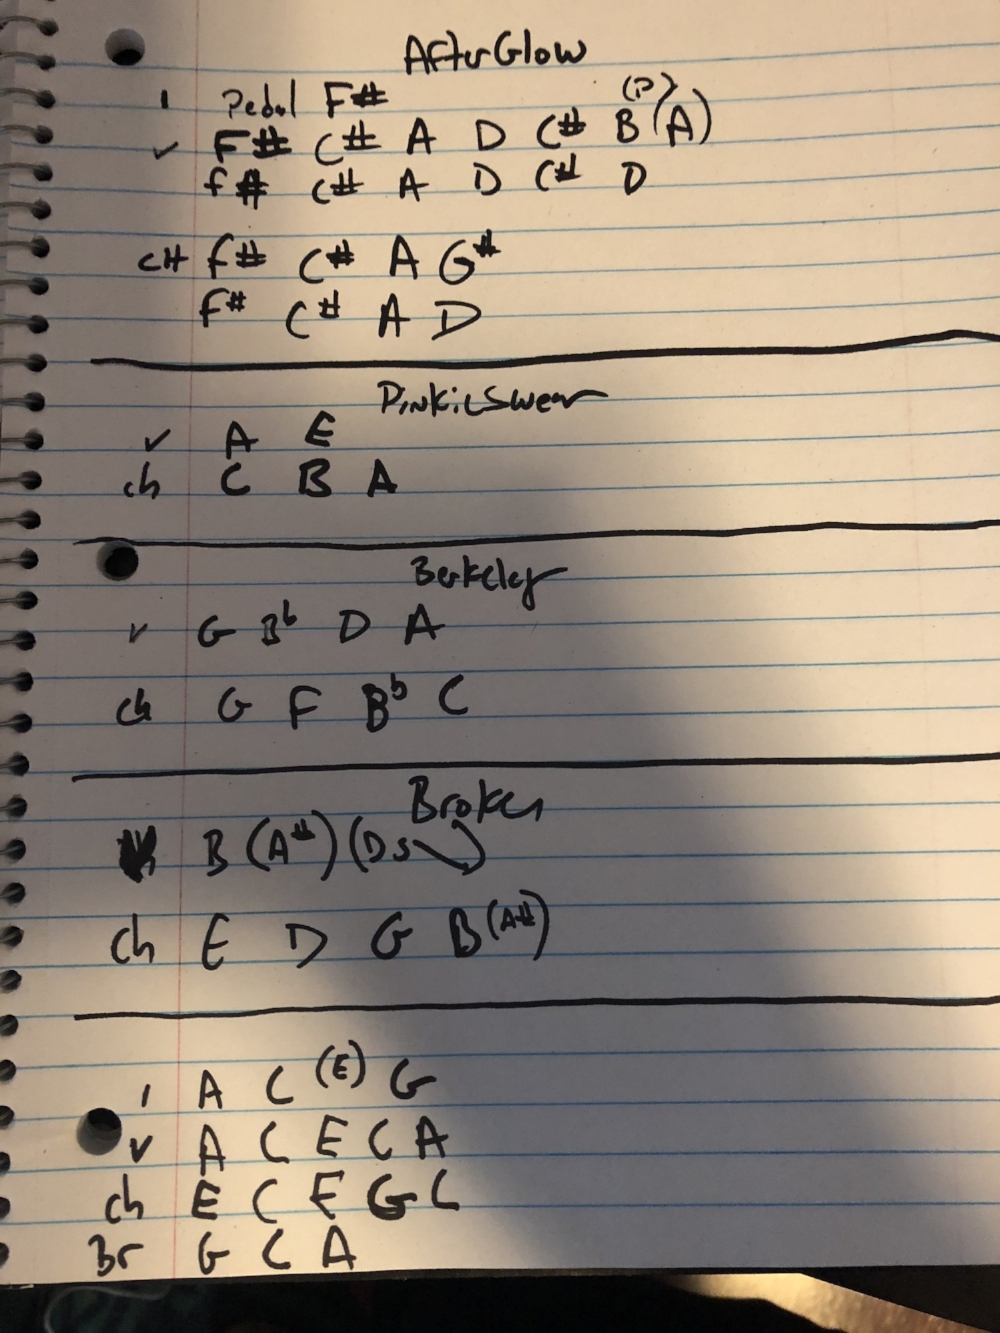 AfterGlow
I Pedal F#
(D)
V F# C# A D C# B (A)
F# C# A D C# D
CH F# C# A G#
F# C# A D
PinkieSwear
V A E
Ch C B A
Berkeley
V G Bb D A
Ch G F Bb C
Broken
B (A#) (D
Ch E D G B (A#)
I A C (E) G
V A C E C A
Ch E C E G C
Br G C A